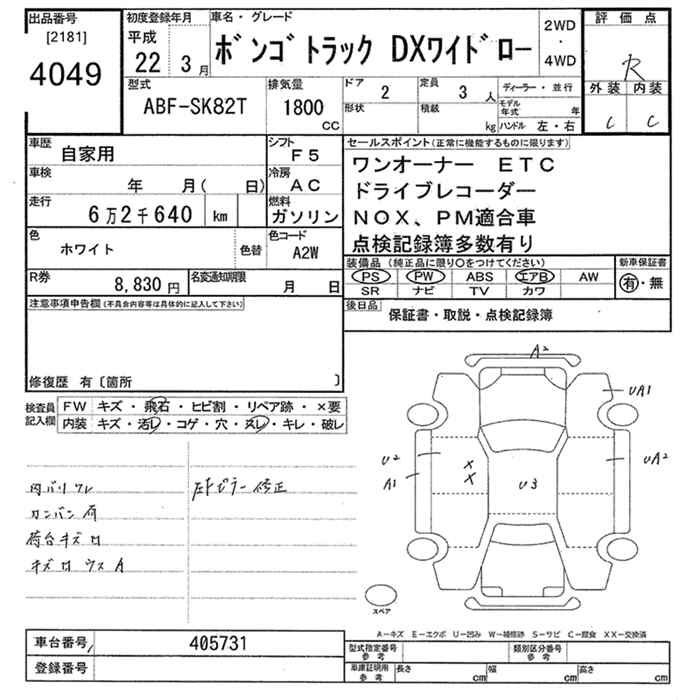 出品番号
[2181]
4049
初度登録年月
平成
22 3月
車名・グレード
ボンゴトラック DXワイドロー
2WD
・
4WD
評価点
R
外装 内装
C C
型式
ABF-SK82T
排気量
1800
CC
ドア
2
形状
定員
3 人
積載
kg
ディーラー・並行
モデル年式 年
ハンドル 左・右
車歴
自家用
シフト
F5
車検
年 月( 日)
冷房
AC
走行
6万2千640 km
燃料
ガソリン
色
ホワイト
色替
色コード
A2W
R券
8,830円
名変通知期限
月 日
セールスポイント(正常に機能するものに限ります)
ワンオーナー ETC
ドライブレコーダー
NOX、PM適合車
点検記録簿多数有り
装備品(純正品に限り○をつけてください)
PS PW ABS エアB AW
SR ナビ TV カワ
新車保証書
有・無
後日品
保証書・取説・点検記録簿
注意事項申告欄(不具合内容等は具体的に記入して下さい)
修復歴 有〔箇所 〕
検査員記入欄
FW キズ・飛石・ヒビ割・リペア跡・×要
内装 キズ・汚レ・コゲ・穴・スレ・キレ・破レ
内バリワレ
カンバン有
荷台キズ
キズ ウスA
左Fピラー修正
A2
UA1
U2
A1
X
X
U3
UA2
スペア
A-キズ E-エクボ U-凹み W-補修跡 S-サビ C-腐食 XX-交換済
車台番号
405731
登録番号
型式指定番号
参考
類別区分番号
参考
車庫証明用
参考
長さ cm
幅 cm
高さ cm